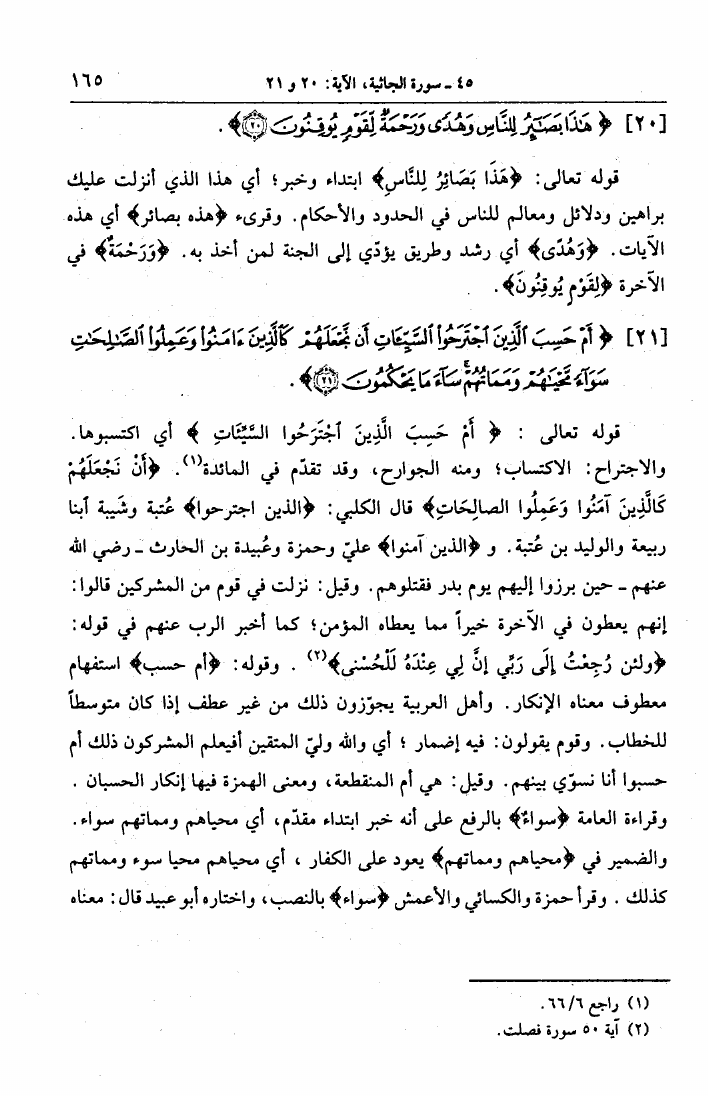 ٤٥ ـ سورة الجاثية، الآية: ٢٠ و ٢١ ١٦٥
[٢٠] ﴿ هَٰذَا بَصَٰٓئِرُ لِلنَّاسِ وَهُدًى وَرَحْمَةٌ لِّقَوْمٍ يُوقِنُونَ ۝٢٠ ﴾ .
قوله تعالى: ﴿هَذَا بَصَائِرُ لِلنَّاسِ﴾ ابتداء وخبر؛ أي هذا الذي أنزلت عليك
براهين ودلائل ومعالم للناس في الحدود والأحكام. وقرىء ﴿هذه بصائر﴾ أي هذه
الآيات. ﴿وَهُدًى﴾ أي رشد وطريق يؤدّي إلى الجنة لمن أخذ به. ﴿وَرَحْمَةٌ﴾ في
الآخرة ﴿لِقَوْمٍ يُوقِنُونَ﴾.
[٢١] ﴿ أَمْ حَسِبَ ٱلَّذِينَ ٱجْتَرَحُوا۟ ٱلسَّيِّـَٔاتِ أَن نَّجْعَلَهُمْ كَٱلَّذِينَ ءَامَنُوا۟ وَعَمِلُوا۟ ٱلصَّٰلِحَٰتِ
سَوَآءً مَّحْيَٰهُمْ وَمَمَاتُهُمْ ۚ سَآءَ مَا يَحْكُمُونَ ۝٢١ ﴾ .
قوله تعالى : ﴿ أَمْ حَسِبَ الَّذِينَ ٱجْتَرَحُوا السَّيِّئَاتِ ﴾ أي اكتسبوها.
والاجتراح: الاكتساب؛ ومنه الجوارح، وقد تقدّم في المائدة(١). ﴿أَنْ نَجْعَلَهُمْ
كَالَّذِينَ آمَنُوا وَعَمِلُوا الصالِحَاتِ﴾ قال الكلبي: ﴿الذين اجترحوا﴾ عُتبة وشَيبة ٱبنا
ربيعة والوليد بن عُتبة. و ﴿الذين آمنوا﴾ عليّ وحمزة وعُبيدة بن الحارث ـ رضي الله
عنهم ـ حين برزوا إليهم يوم بدر فقتلوهم. وقيل: نزلت في قوم من المشركين قالوا:
إنهم يعطون في الآخرة خيراً مما يعطاه المؤمن؛ كما أخبر الرب عنهم في قوله:
﴿ولئن رُجِعْتُ إِلَى رَبِّي إنَّ لِي عِنْدَهُ لَلْحُسْنى﴾(٢) . وقوله: ﴿أم حسب﴾ استفهام
معطوف معناه الإنكار. وأهل العربية يجوّزون ذلك من غير عطف إذا كان متوسطاً
للخطاب. وقوم يقولون: فيه إضمار ؛ أي والله وليّ المتقين أفيعلم المشركون ذلك أم
حسبوا أنا نسوّي بينهم. وقيل: هي أم المنقطعة، ومعنى الهمزة فيها إنكار الحسبان .
وقراءة العامة ﴿سواءٌ﴾ بالرفع على أنه خبر ابتداء مقدّم، أي محياهم ومماتهم سواء.
والضمير في ﴿محياهم ومماتهم﴾ يعود على الكفار ، أي محياهم محيا سوء ومماتهم
كذلك . وقرأ حمزة والكسائي والأعمش ﴿سواء﴾ بالنصب، واختاره أبو عبيد قال: معناه
(١) راجع ٦/ ٦٦.
(٢) آية ٥٠ سورة فصلت.